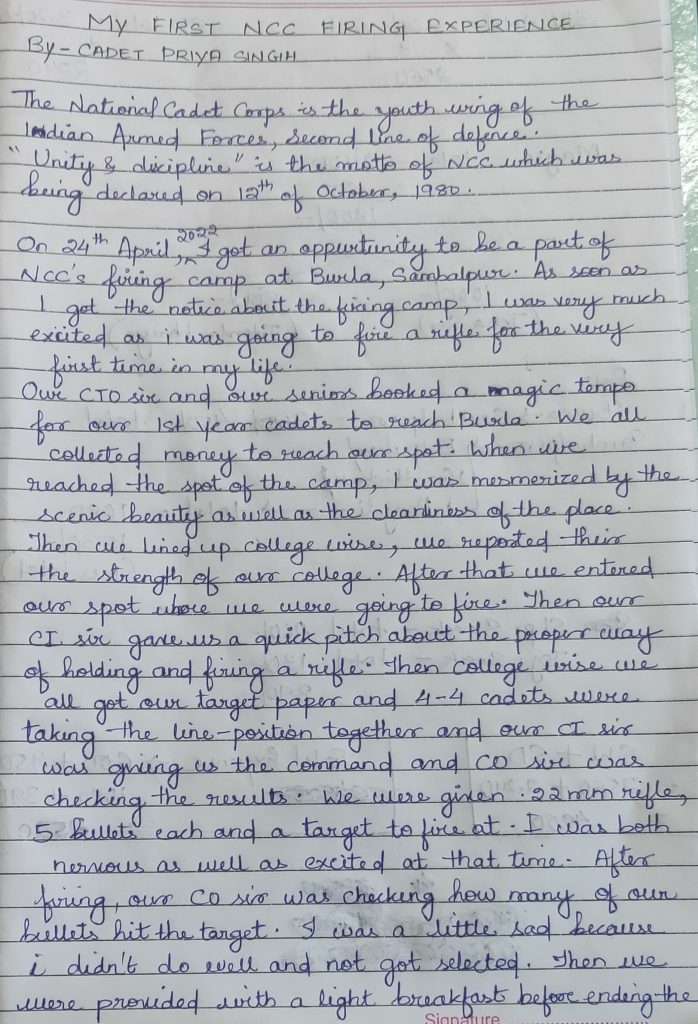 MY FIRST NCC FIRING EXPERIENCE
By - CADET PRIYA SINGH
The National Cadet Corps is the youth wing of the
Indian Armed Forces, second line of defence.
"Unity & discipline" is the motto of NCC which was
being declared on 12th of October, 1980.
On 24th April, 2022 I got an oppurtunity to be a part of
NCC's firing camp at Burla, Sambalpur. As soon as
I got the notice about the firing camp, I was very much
excited as i was going to fire a rifle for the very
first time in my life.
Our CTO sir and our seniors booked a magic tempo
for our 1st year cadets to reach Burla. We all
collected money to reach our spot. When we
reached the spot of the camp, I was mesmerized by the
scenic beauty as well as the cleanliness of the place.
Then we lined up college wise, we reported their
the strength of our college. After that we entered
our spot where we were going to fire. Then our
CI sir gave us a quick pitch about the proper way
of holding and firing a rifle. Then college wise we
all got our target paper and 4-4 cadets were
taking the line-position together and our CI sir
was giving us the command and CO sir was
checking the results. We were given .22mm rifle,
5 bullets each and a target to fire at. I was both
nervous as well as excited at that time. After
firing, our CO sir was checking how many of our
bullets hit the target. I was a little sad because
i didn't do well and not got selected. Then we
were provided with a light breakfast before ending the
Signature